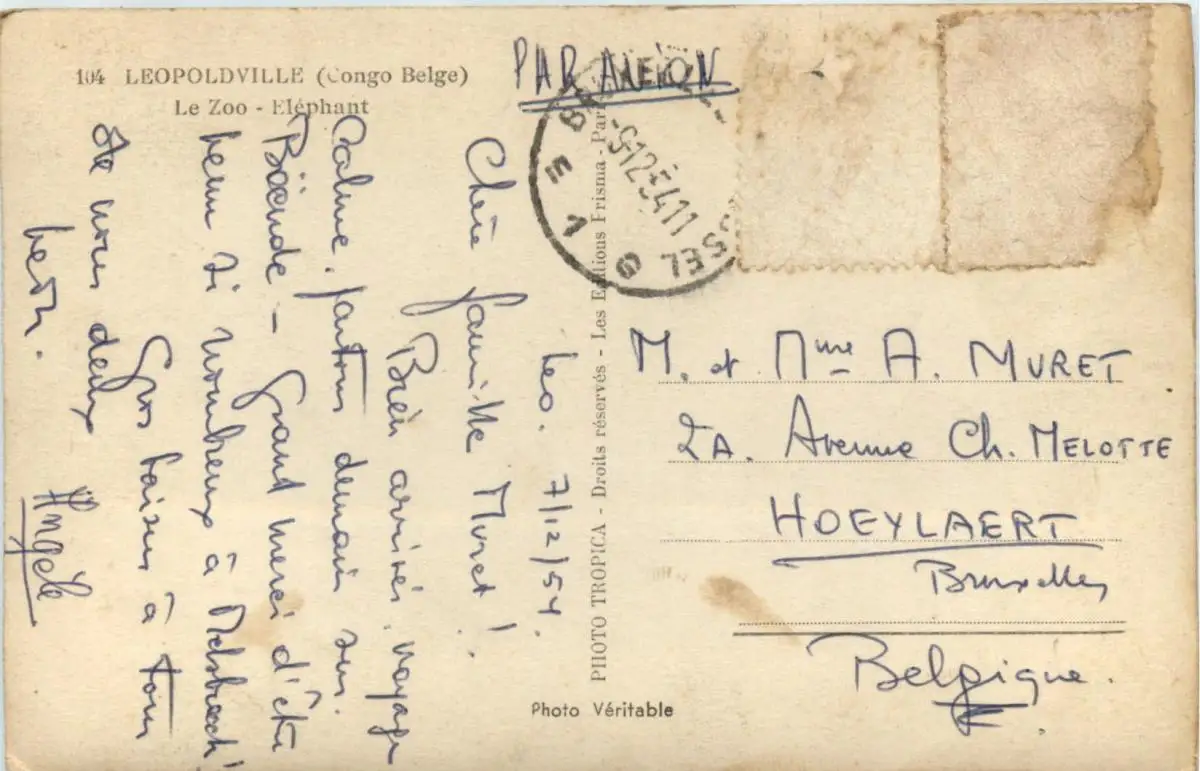 104 LEOPOLDVILLE (Congo Belge)
Le Zoo - Eléphant
PAR AVION
Leo. 7/12/54.
Chère famille Muret!
Bien arrivés, voyage
calme, partons demain sur
Böende - Grand merci d'être
venu si nombreux à Melsbroeck!
de nous deux
Gros baisers à tous
Angèle
9-12-54 11
BELGE
PHOTO TROPICA - Droits réservés - Les Editions Prisma - Paris
Photo Véritable
M. et Mme A. MURET
2A. Avenue Ch. MELOTTE
HOEYLAERT
Bruxelles
Belgique.